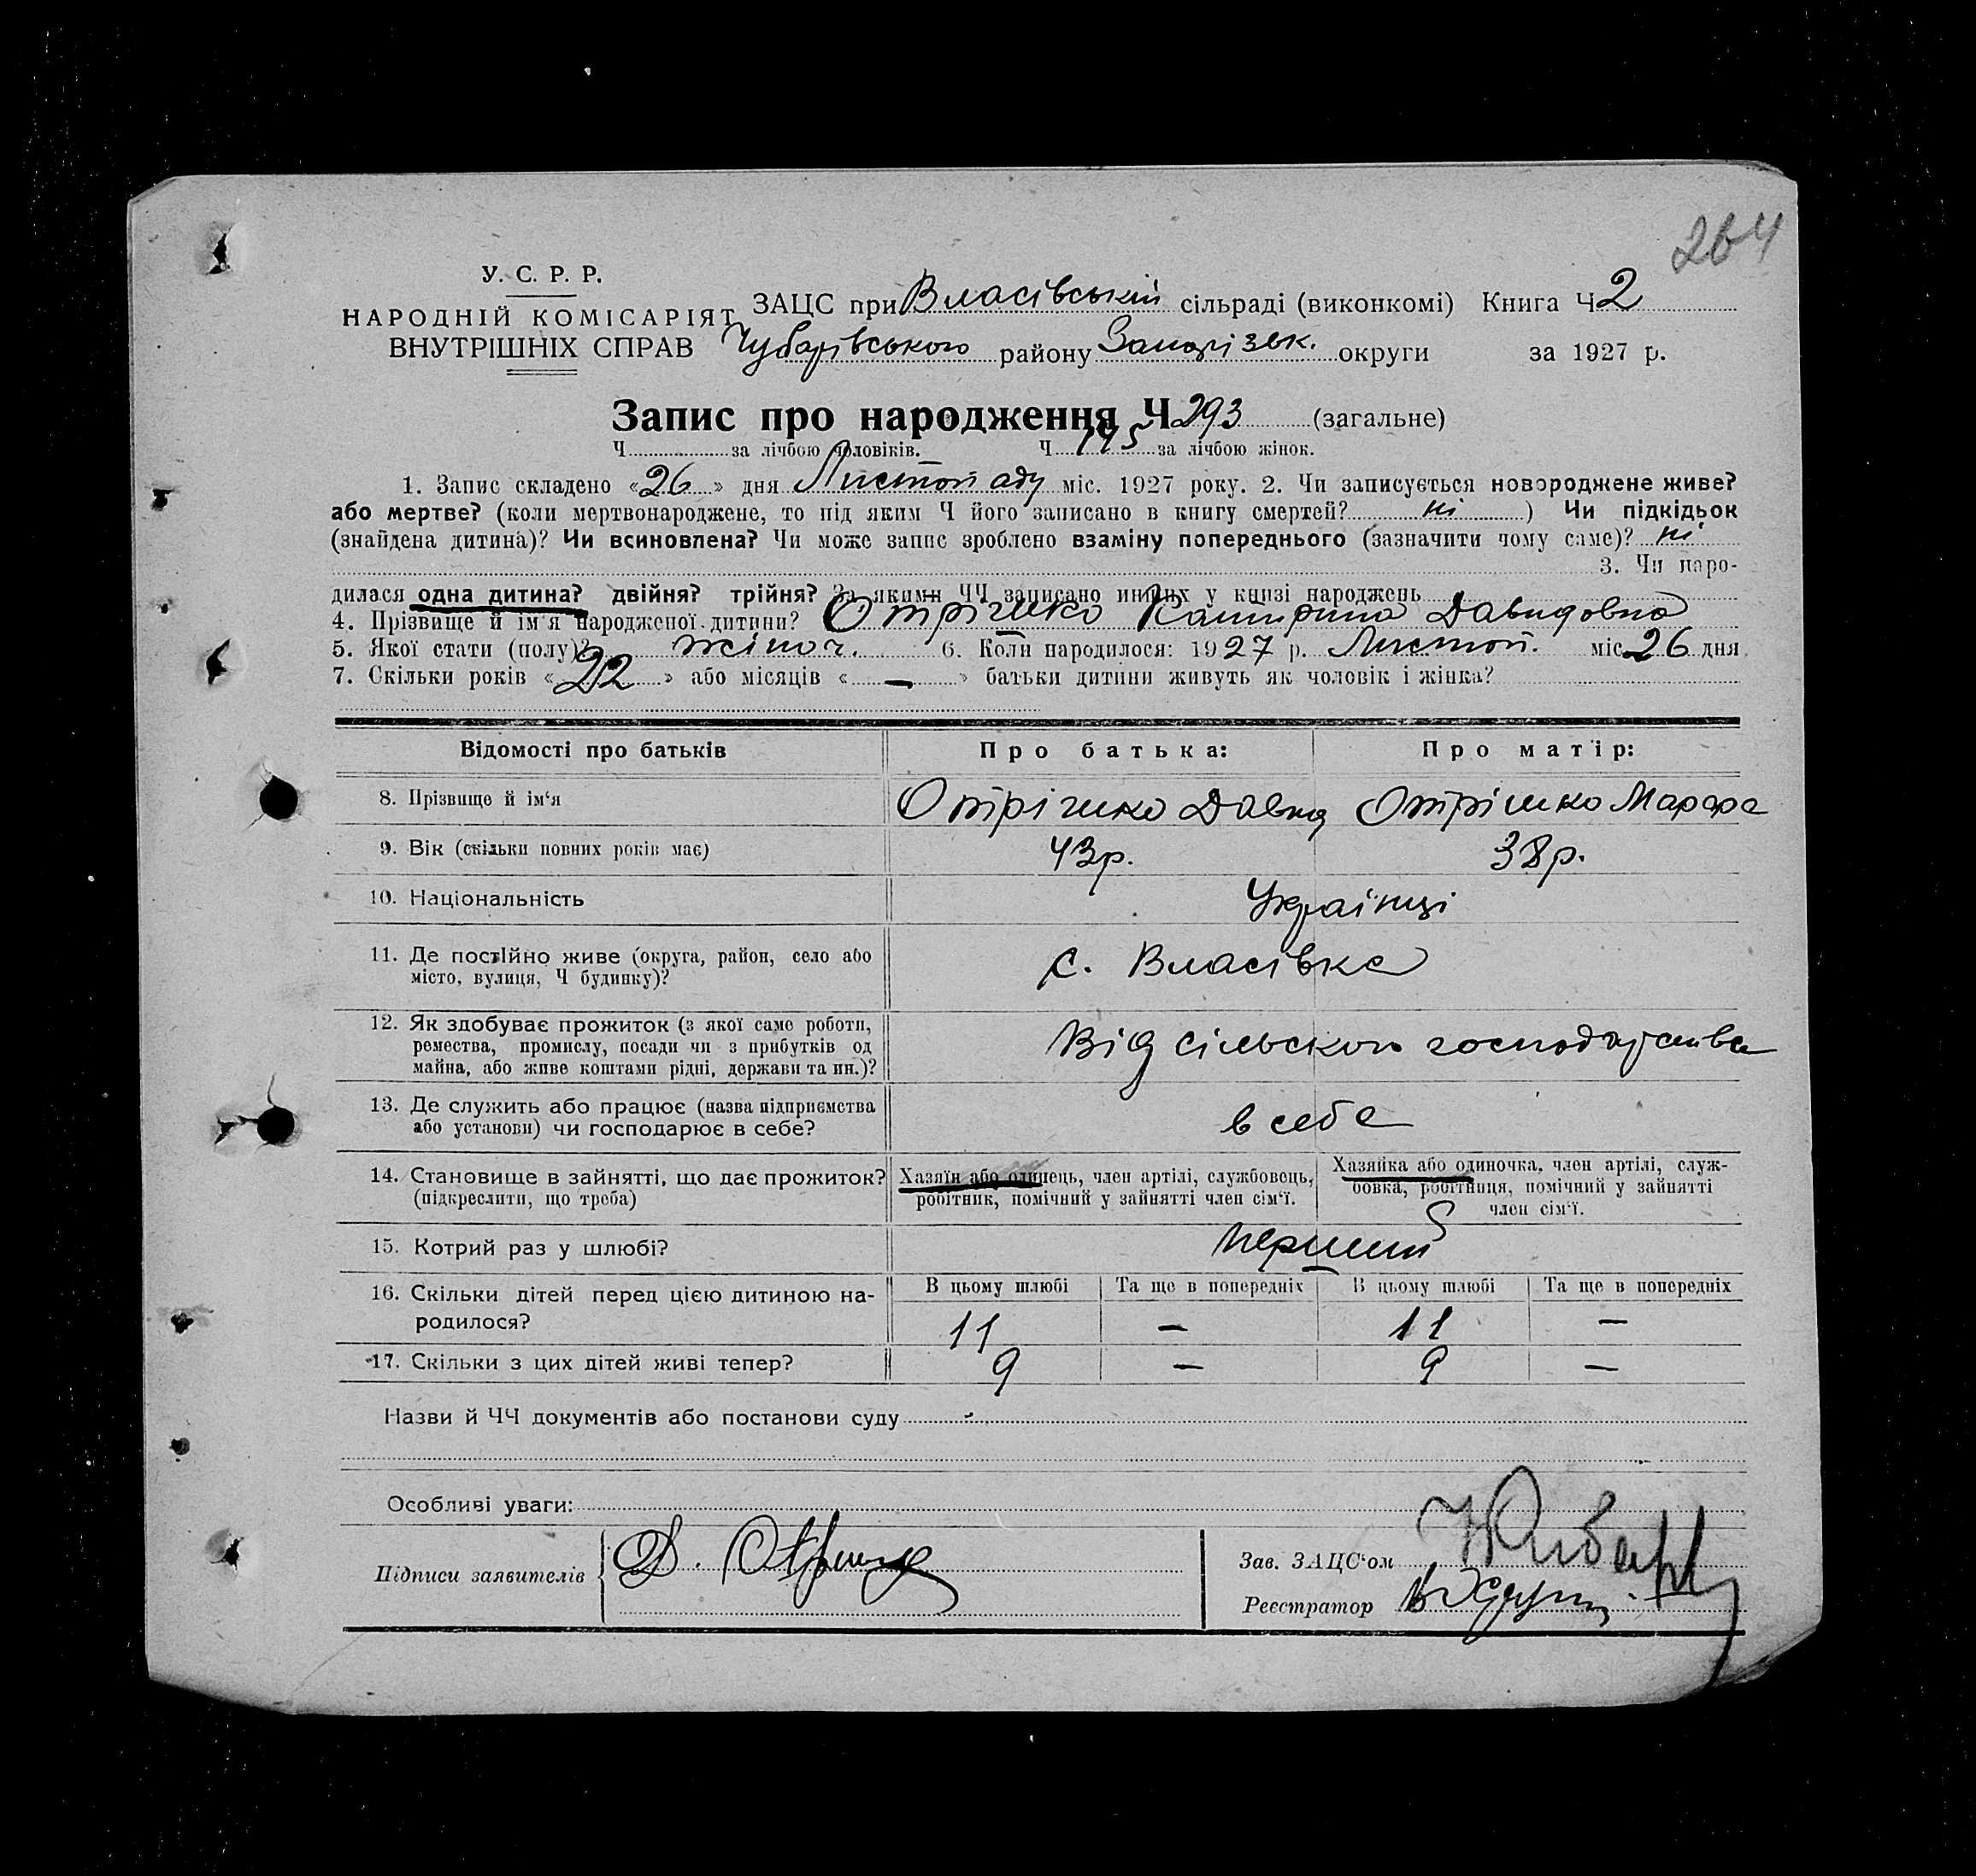 264
У. С. Р. Р.
НАРОДНІЙ КОМІСАРІЯТ
ВНУТРІШНІХ СПРАВ
ЗАЦС при Власівській сільраді (виконкомі) Книга Ч 2
Чубарівського району Запорізьк. округи за 1927 р.
Запис про народження Ч 293 (загальне)
Ч за лічбою чоловіків. Ч 145 за лічбою жінок.
1. Запис складено «26» дня Листопаду міс. 1927 року. 2. Чи записується новороджене живе?
або мертве? (коли мертвонароджене, то під яким Ч його записано в книгу смертей? ні) Чи підкідьок
(знайдена дитина)? Чи всиновлена? Чи може запис зроблено взаміну попереднього (зазначити чому саме)? ні
3. Чи наро-
дилася одна дитина? двійня? трійня? За якими ЧЧ записано инших у книзі народжень
4. Прізвище й ім'я народженої дитини? Отрішко Катерина Давидовна
5. Якої стати (полу)? жіноч. 6. Коли народилося: 1927 р. Листоп. міс. 26 дня
7. Скільки років «22» або місяців «—» батьки дитини живуть як чоловік і жінка?
Відомості про батьків Про батька: Про матір:
8. Прізвище й ім'я Отрішко Давид Отрішко Марфа
9. Вік (скільки повних років має) 43р. 38р.
10. Національність Українці
11. Де постійно живе (округа, район, село або
місто, вулиця, Ч будинку)? с. Власівка
12. Як здобуває прожиток (з якої саме роботи,
ремества, промислу, посади чи з прибутків од
майна, або живе коштами рідні, держави та ин.)? Від сільського господарства
13. Де служить або працює (назва підприємства
або установи) чи господарює в себе? в себе
14. Становище в зайнятті, що дає прожиток?
(підкреслити, що треба)
Хазяїн або одинець, член артілі, службовець,
робітник, помічний у зайнятті член сім'ї.
Хазяйка або одиночка, член артілі, служ-
бовка, робітниця, помічний у зайнятті
член сім'ї.
15. Котрий раз у шлюбі? перший
16. Скільки дітей перед цією дитиною на-
родилося?
В цьому шлюбі Та ще в попередніх В цьому шлюбі Та ще в попередніх
11 — 11 —
17. Скільки з цих дітей живі тепер? 9 — 9 —
Назви й ЧЧ документів або постанови суду
Особливі уваги:
Підписи заявителів Д.
Зав. ЗАЦС'ом
Реєстратор